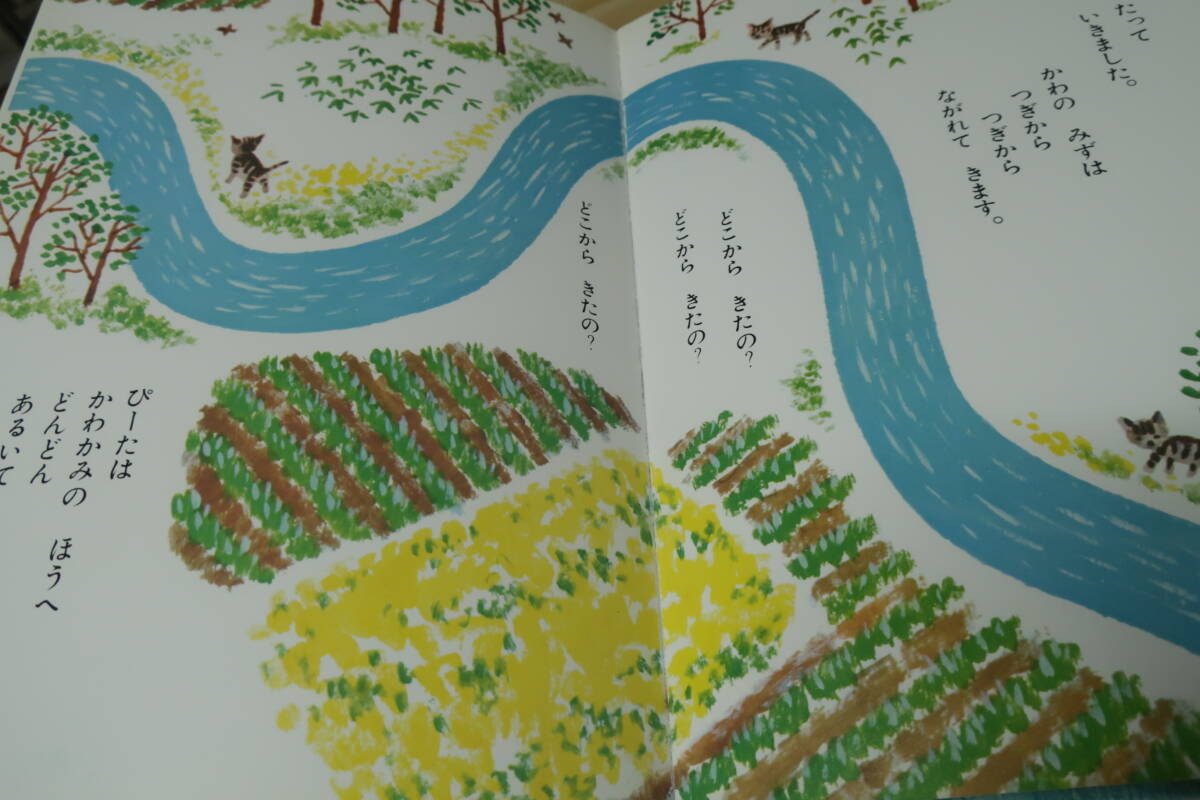 たって
いきました。
かわの　みずは
つぎから
つぎから
ながれて　きます。
どこから　きたの?
どこから　きたの?
どこから　きたの?
ぴーたは
かわかみの　ほうへ
どんどん
あるいて